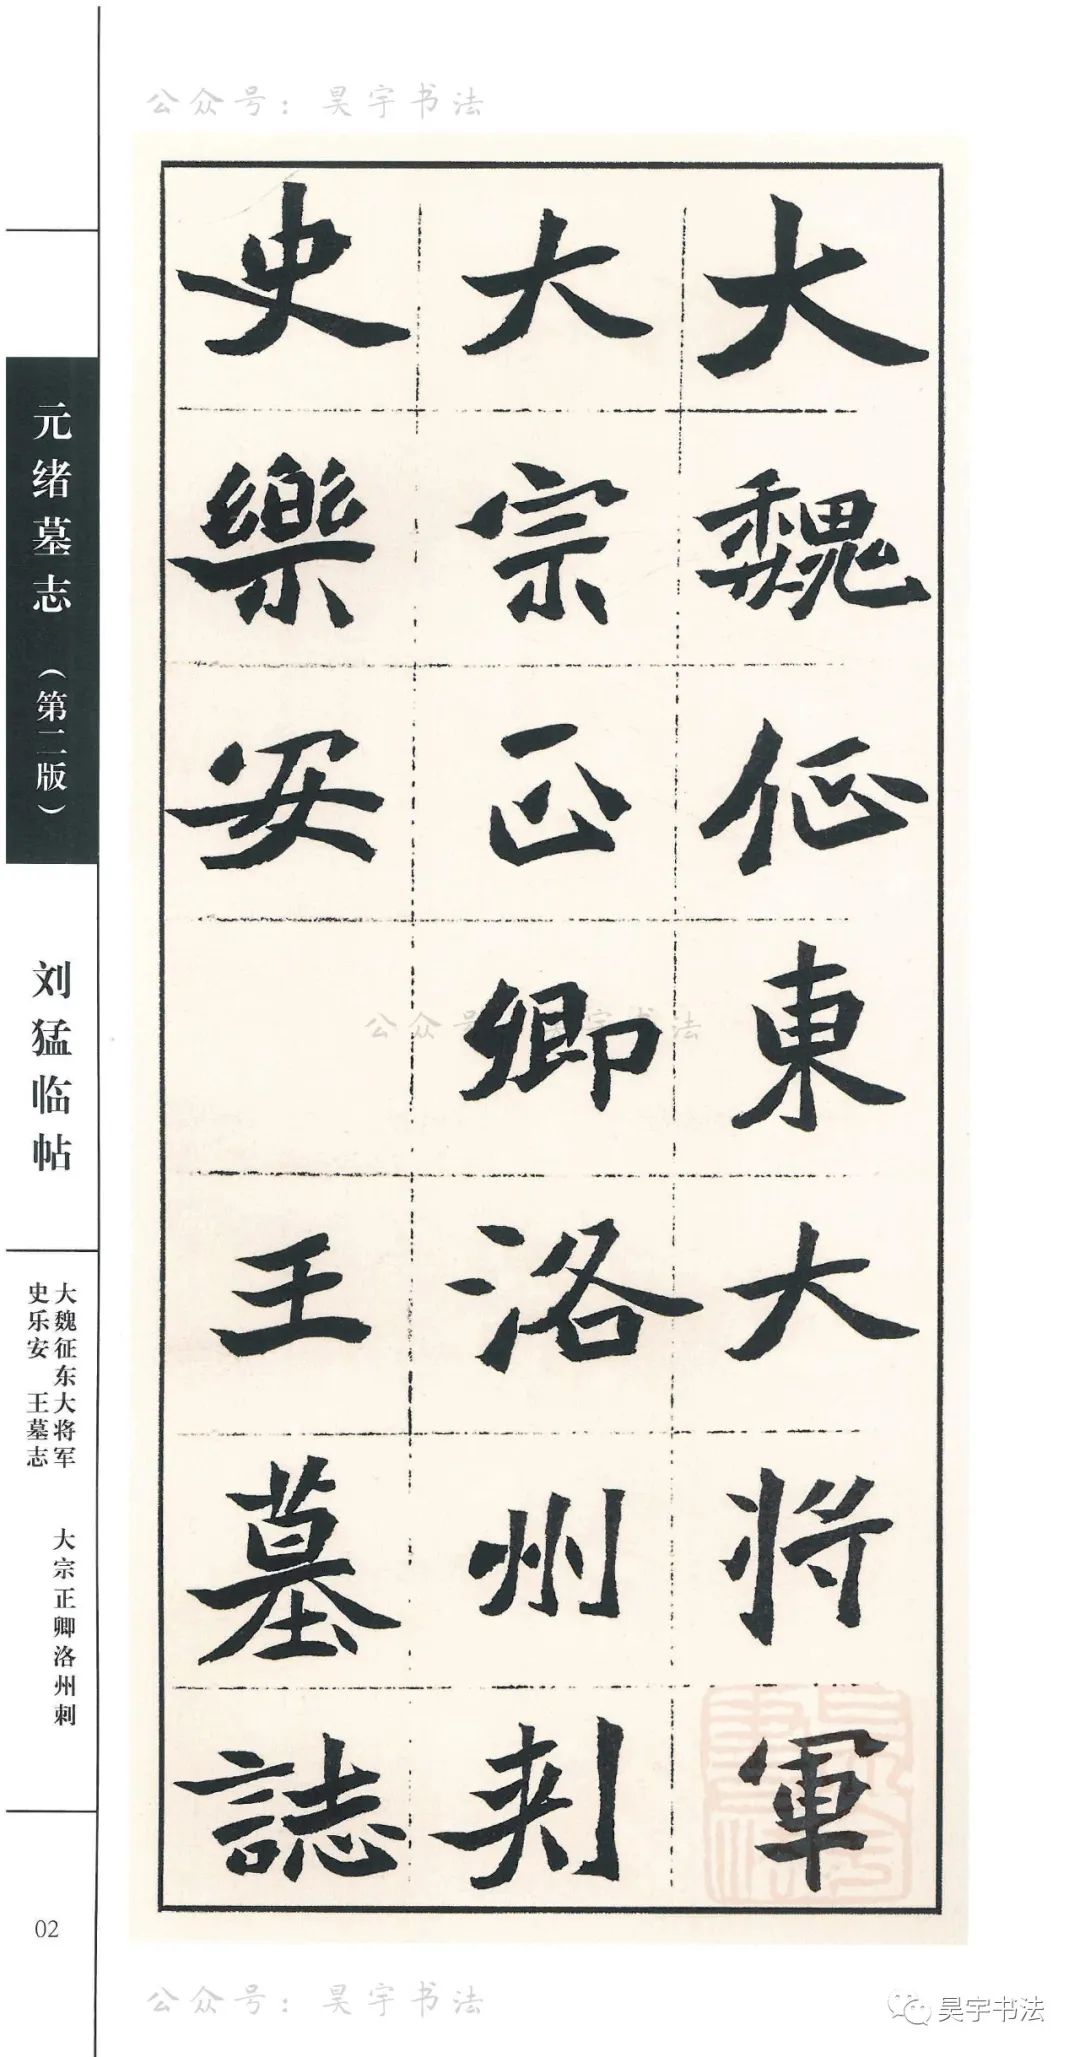 公众号：昊宇书法
大魏征東大将軍
大宗正卿洛州刺
史樂安 王墓誌
元绪墓志（第二版）
刘猛临帖
大魏征东大将军 大宗正卿洛州刺
史乐安 王墓志
02
公众号：昊宇书法
公众号：昊宇书法
昊宇书法